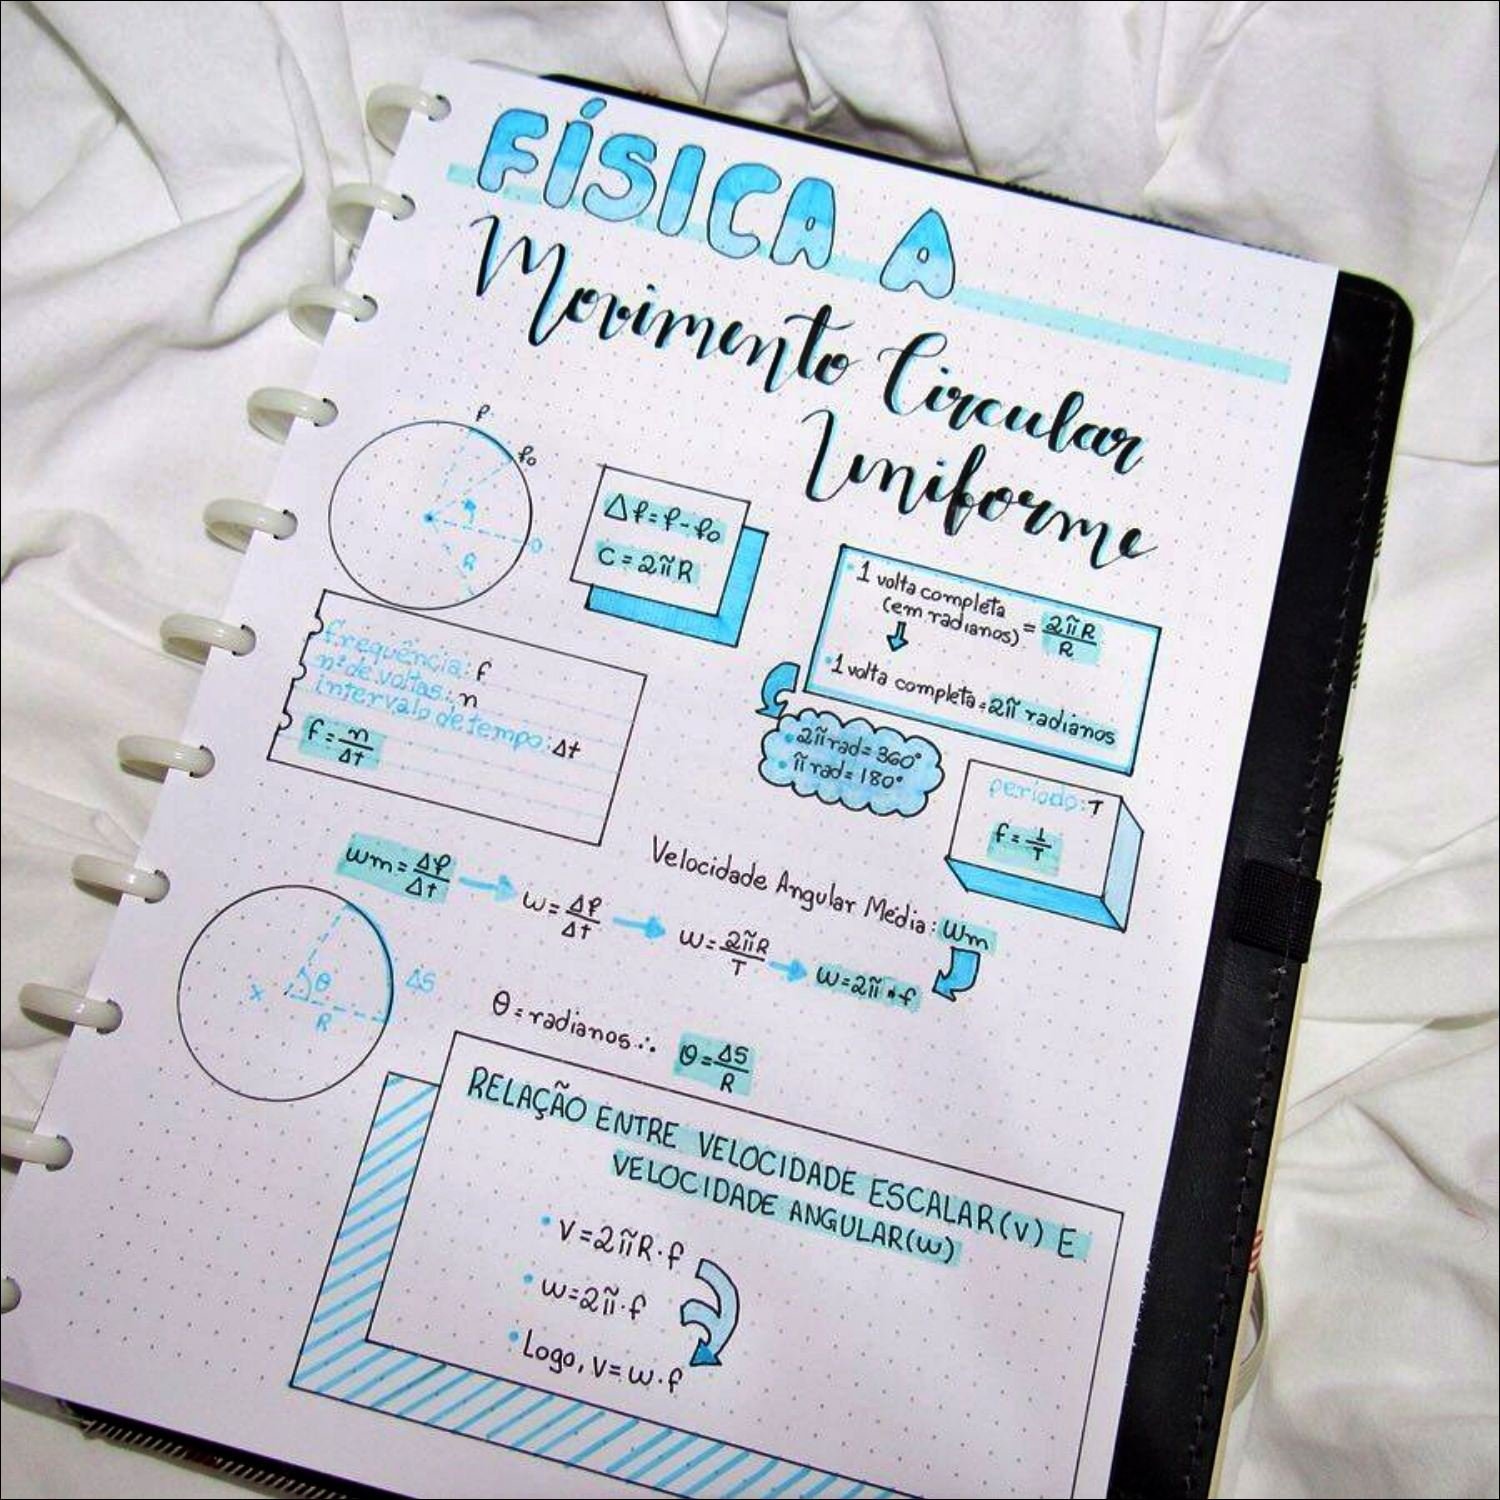 FÍSICA A
Movimento Circular
Uniforme
φ
φo
O
R
Δφ=φ-φo
C=2πR
1 volta completa
(em radianos) = 2πR/R
1 volta completa=2π radianos
2π rad=360°
π rad=180°
frequência: f
nº de voltas: n
intervalo de tempo: Δt
f=n/Δt
período: T
f=1/T
Velocidade Angular Média: ωm
ωm=Δφ/Δt
ω=Δφ/Δt
ω=2πR/T
ω=2π•f
x
θ
R
ΔS
θ=radianos ∴ θ=ΔS/R
RELAÇÃO ENTRE VELOCIDADE ESCALAR(V) E
VELOCIDADE ANGULAR(ω)
V=2πR·f
ω=2π·f
Logo, V=ω·f